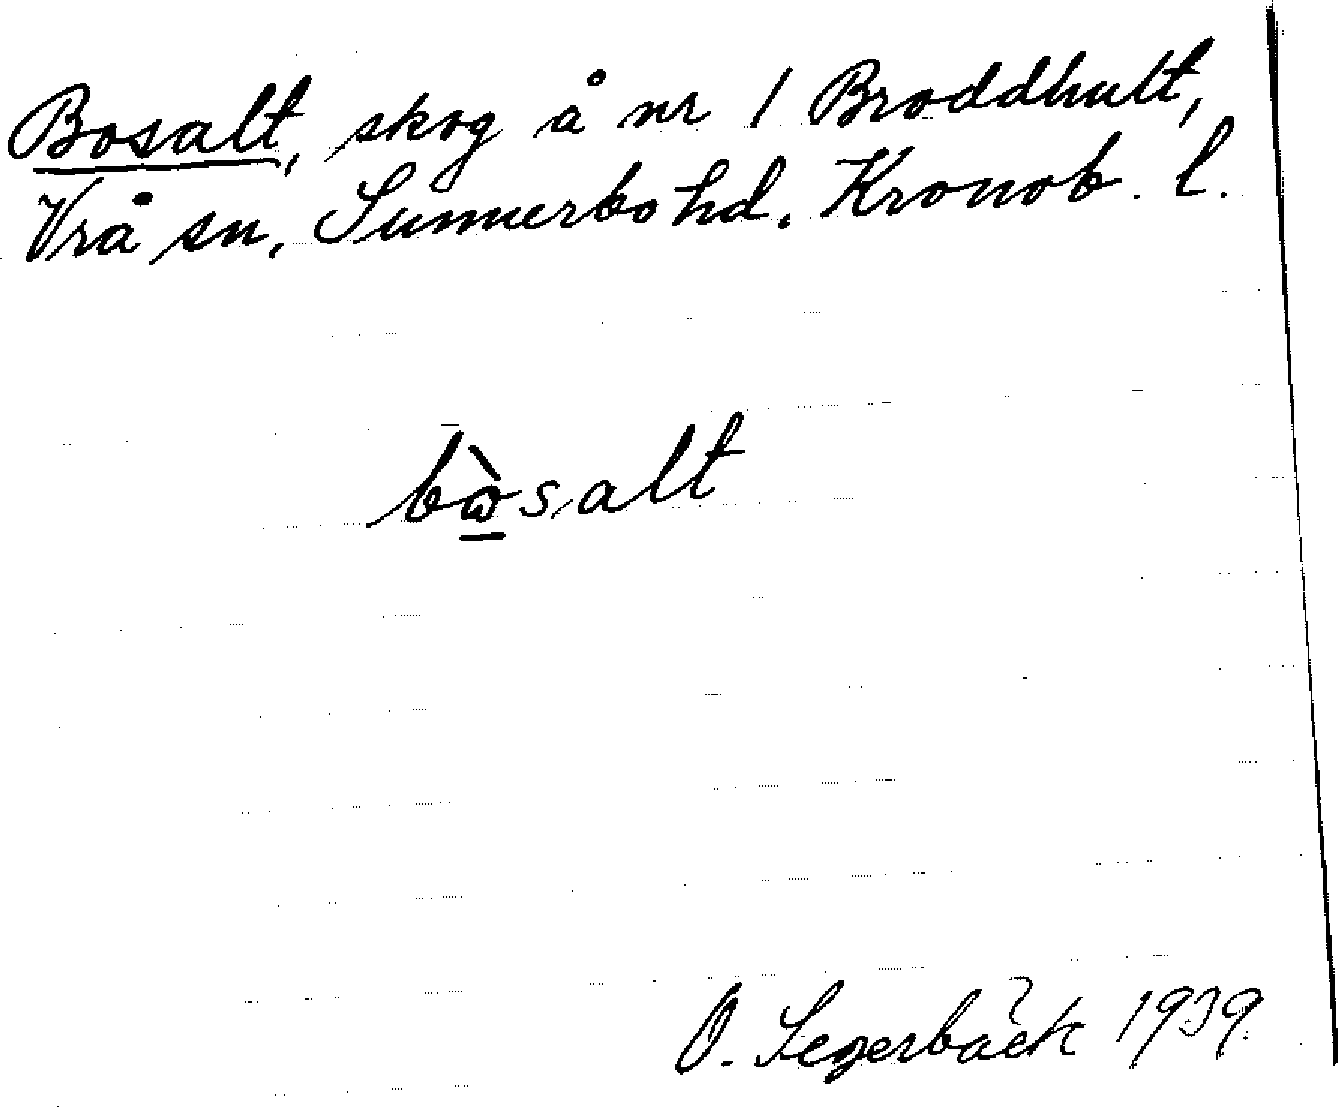 Bosalt, skog å nr 1 Broddhult,
Vrå sn, Sunnerbo hd. Kronob. l.
bὼ̱salt
O. Segerbäck 1939.